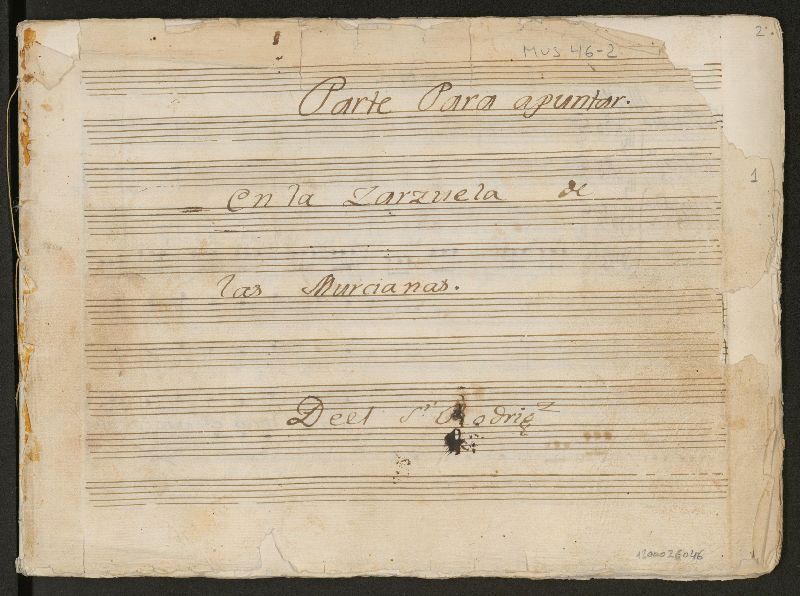 2
MUS 46-2
Parte Para apuntar.
1
En la Zarzuela de
las Murcianas.
Deel S.r Rodrig.z
1200026046